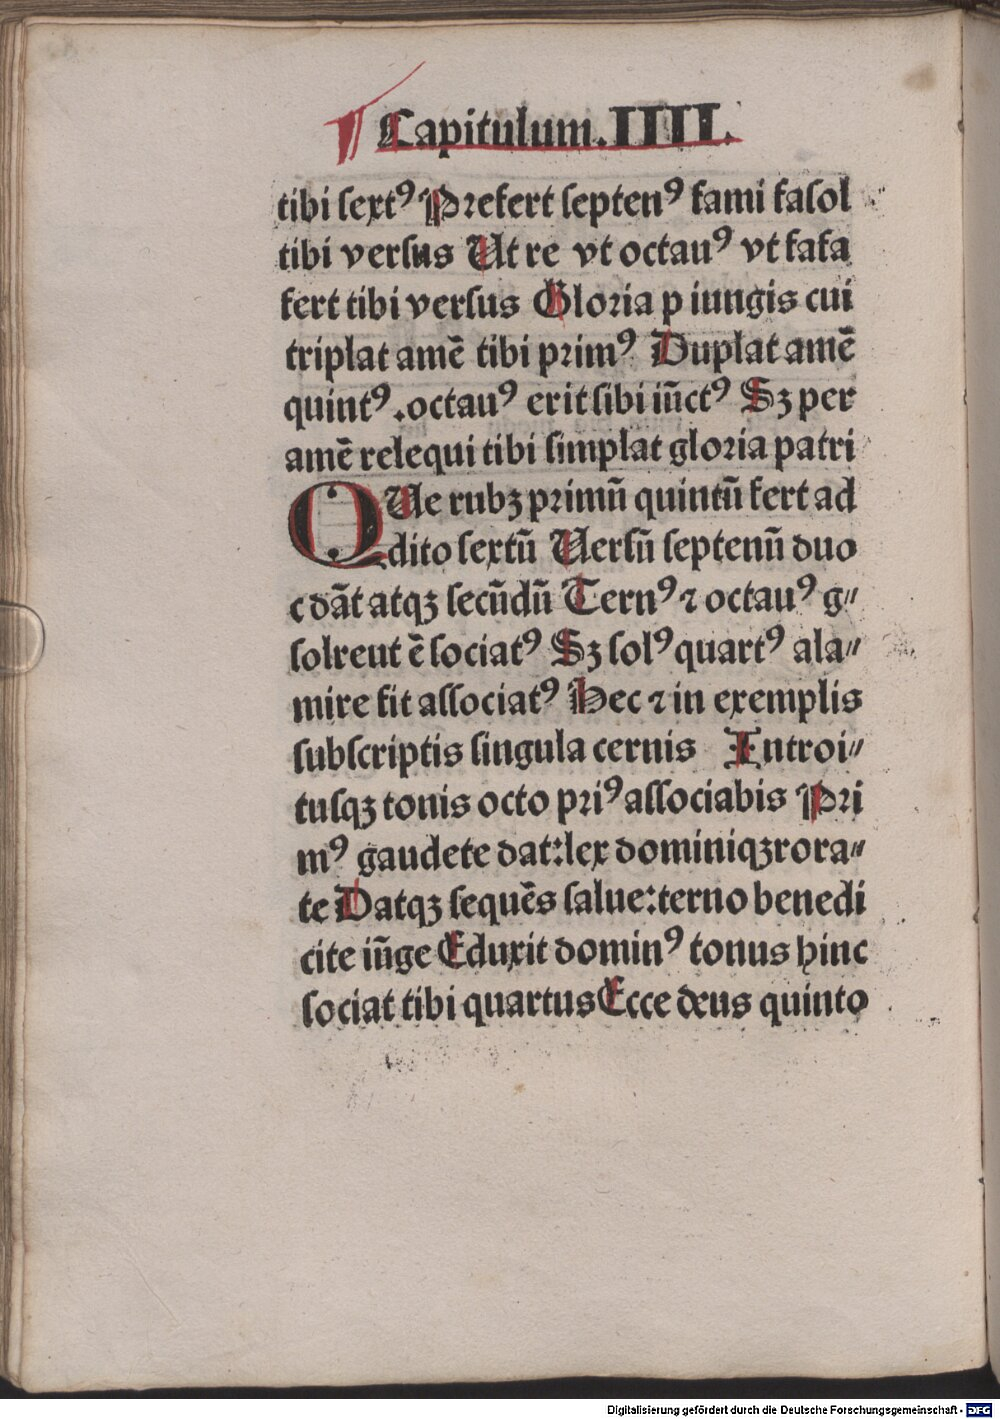 ¶ Capitulum.IIII.
tibi ſextꝰ Prefert ſeptenꝰ fami faſol
tibi verſus Ut re vt octauꝰ vt fafa
fert tibi verſus Gloria p iungis cui
triplat amē tibi primꝰ Duplat amē
quintꝰ .octauꝰ erit ſibi iūctꝰ Sꝫ per
amē relequi tibi ſimplat gloria patri
QUe rubꝫ primū quintū fert ad
dito ſextū Uerſū ſeptenū duo
c dāt atqꝫ ſecūdū Ternꝰ ⁊ octauꝰ g⸗
ſolreut ē ſociatꝰ Sꝫ ſolꝰ quartꝰ ala⸗
mire fit aſſociatꝰ Hec ⁊ in exemplis
ſubſcriptis ſingula cernis Introi⸗
tuſqꝫ tonis octo priꝰ aſſociabis Pri
mꝰ gaudete dat:lex dominiqꝫ rora⸗
te Datqꝫ ſequēs ſalue:terno benedi
cite iūge Eduxit dominꝰ tonus hinc
ſociat tibi quartus Ecce deus quinto
Digitalisierung gefördert durch die Deutsche Forschungsgemeinschaft - DFG